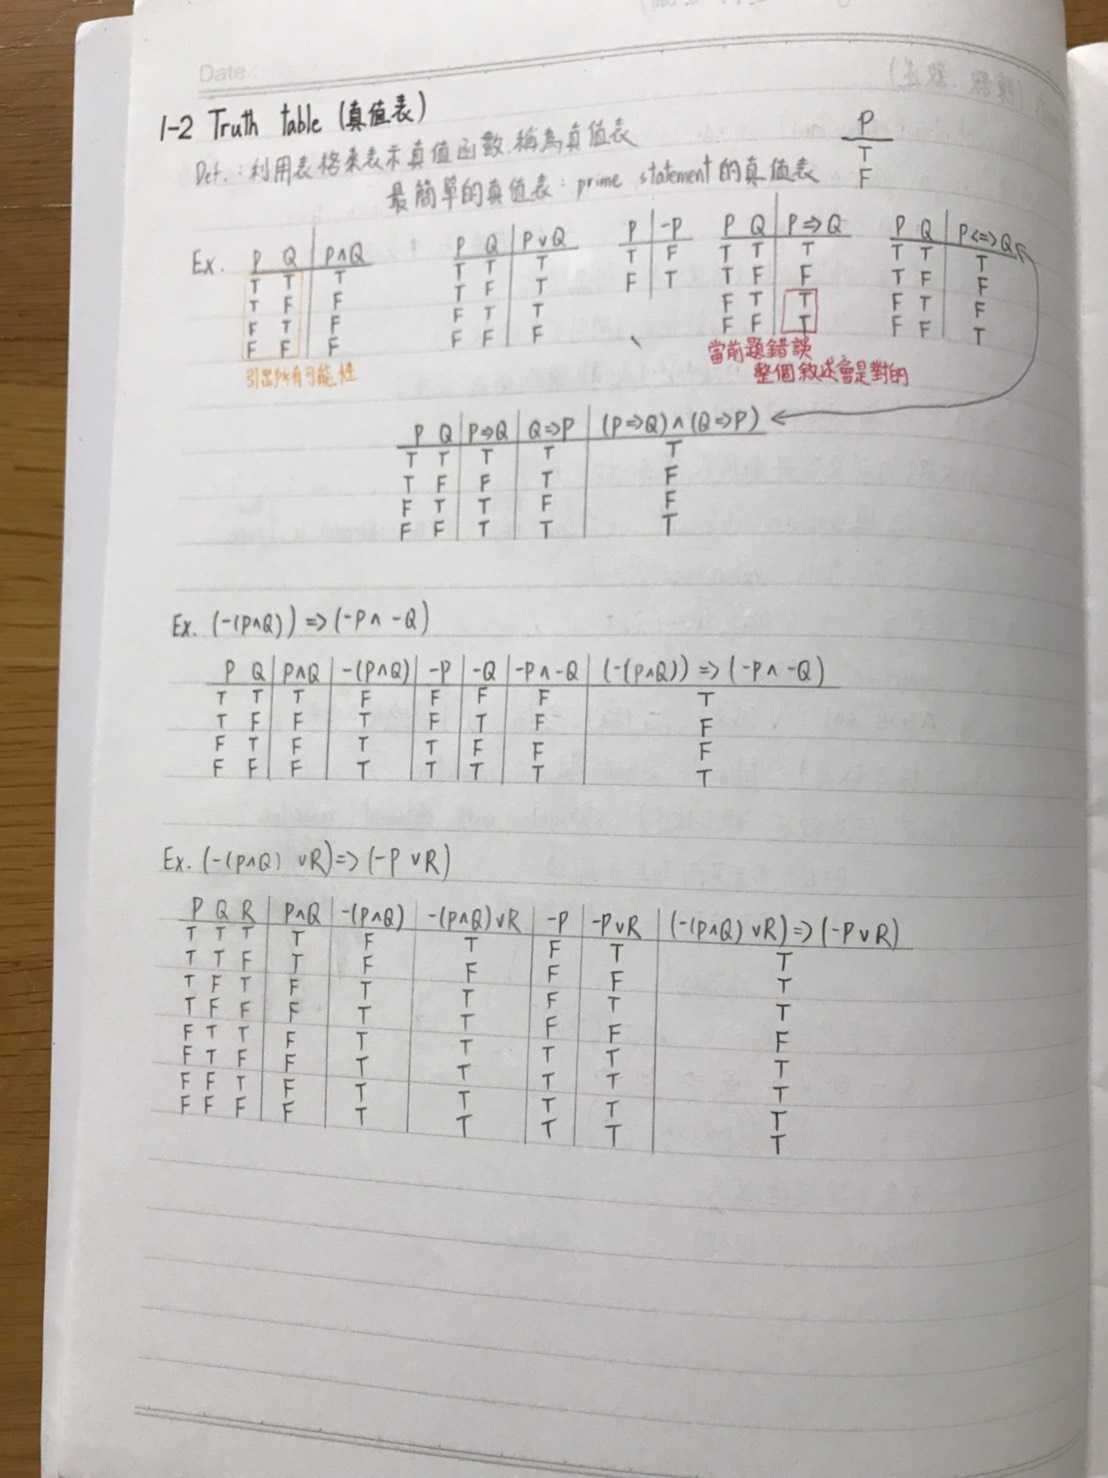 Date :
1-2 Truth table (真值表)
Def. : 利用表格來表示真值函數,稱為真值表
最簡單的真值表: prime statement的真值表
P
T
F
Ex.
P Q P∧Q
T T T
T F F
F T F
F F F
引出所有可能性
P Q P∨Q
T T T
T F T
F T T
F F F
P -P
T F
F T
P Q P⇒Q
T T T
T F F
F T T
F F T
當前題錯誤
整個敘述會是對的
P Q P<=>Q
T T T
T F F
F T F
F F T
P Q P⇒Q Q⇒P (P⇒Q)∧(Q⇒P)
T T T T T
T F F T F
F T T F F
F F T T T
Ex. (-(P∧Q))=>(-P∧-Q)
P Q P∧Q -(P∧Q) -P -Q -P∧-Q (-(P∧Q))=>(-P∧-Q)
T T T F F F F T
T F F T F T F F
F T F T T F F F
F F F T T T T T
Ex. (-(P∧Q) ∨R)=>(-P∨R)
P Q R P∧Q -(P∧Q) -(P∧Q)∨R -P -P∨R (-(P∧Q)∨R)=>(-P∨R)
T T T T F T F T T
T T F T F F F F T
T F T F T T F T T
T F F F T T F F F
F T T F T T T T T
F T F F T T T T T
F F T F T T T T T
F F F F T T T T T